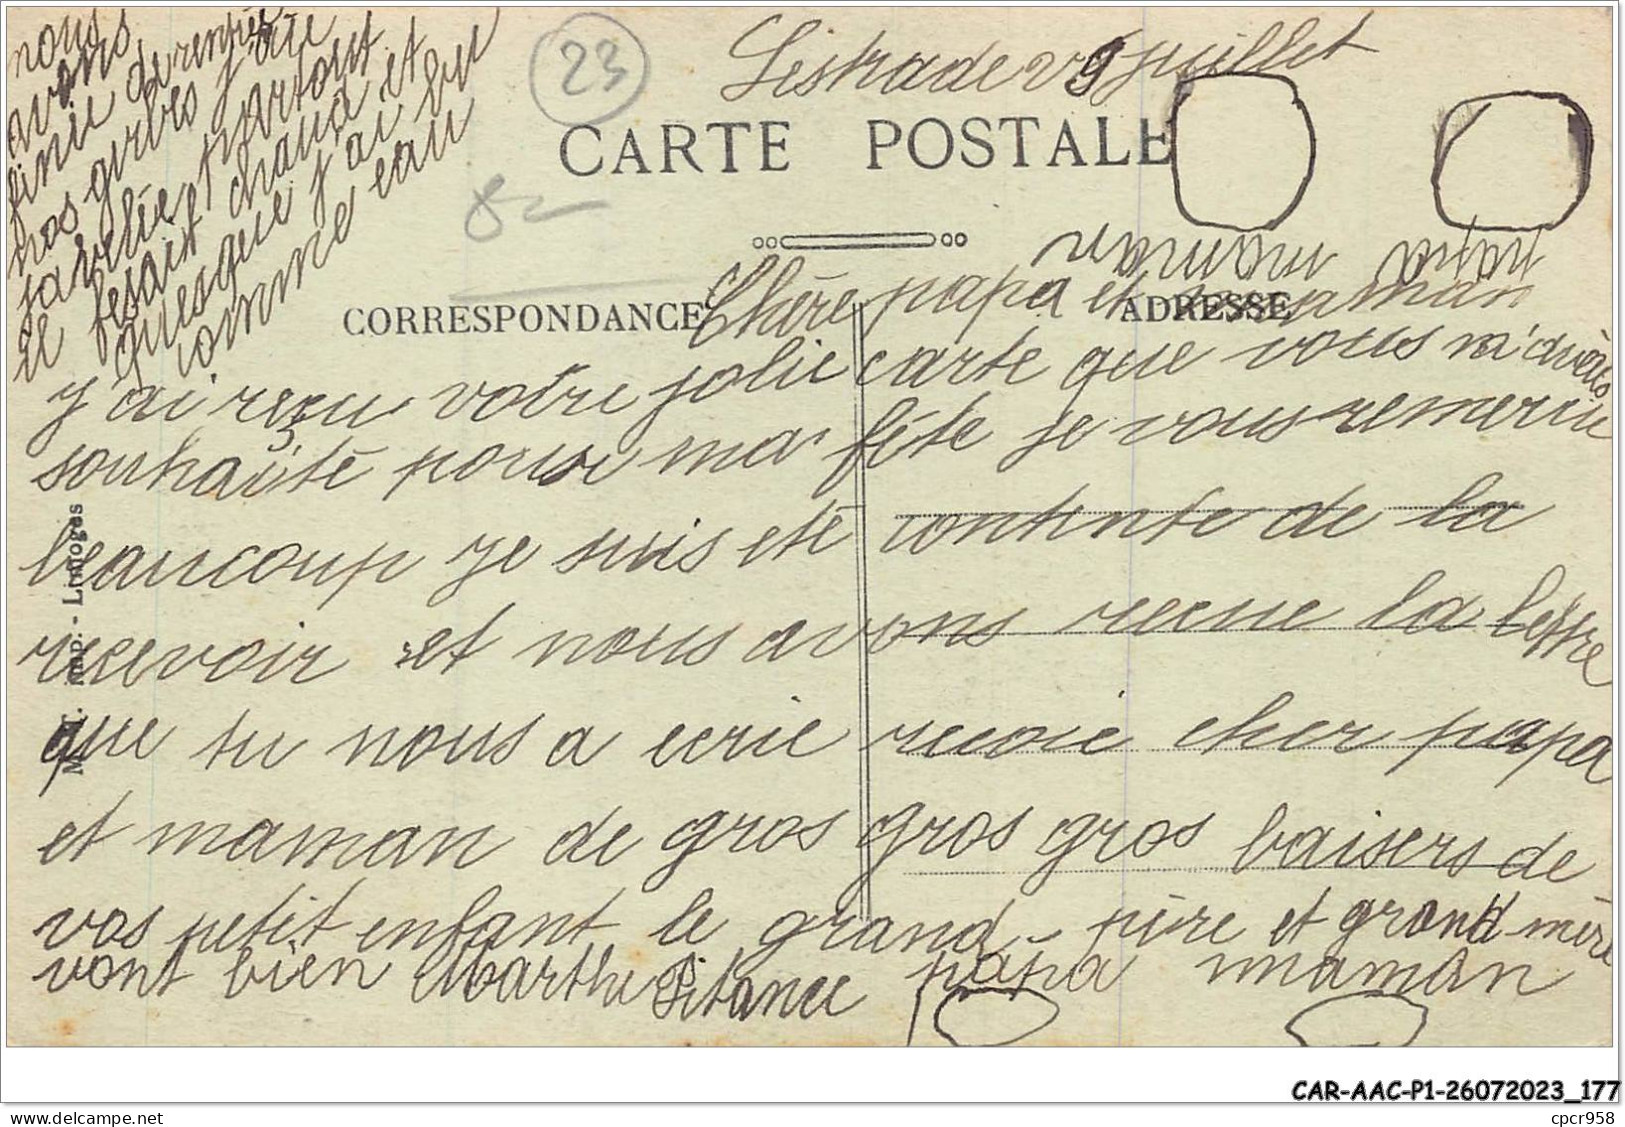 nous
avons
finie de rentrée
nos gerbes j'ete
javelée partout
il fesait chaud et
quesque j'ai bu
comme eau
23
Lestrade 29 juillet
CARTE POSTALE
82
papa maman
CORRESPONDANCE
ADRESSE
Chère papa et maman
j'ai reçu votre jolie carte que vous m'avais
souhaité pour ma fête je vous remercie
beaucoup je suis eté contente de la
recevoir et nous avons recue la lettre
que tu nous a ecrie recoie cher papa
et maman de gros gros gros baisers de
vos petit enfant le grand père et grand mère
vont bien Marthe Pitance papa maman
M. T. Imp. - Limoges
CAR-AAC-P1-26072023_177
cpcr958